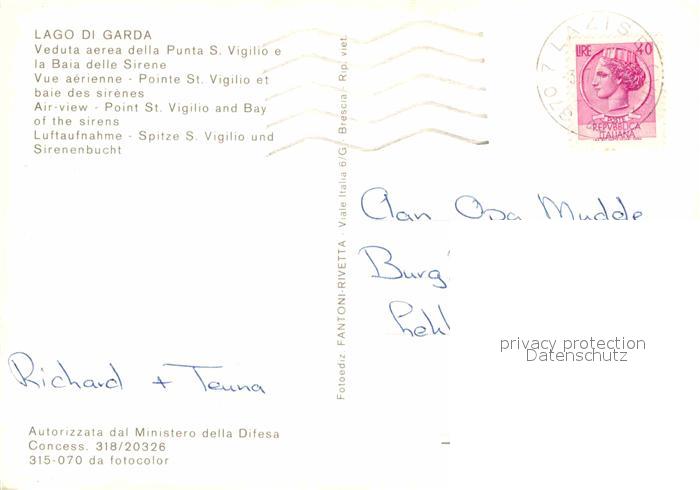 LAGO DI GARDA
Veduta aerea della Punta S. Vigilio e
la Baia delle Sirene
Vue aérienne - Pointe St. Vigilio et
baie des sirènes
Air-view - Point St. Vigilio and Bay
of the sirens
Luftaufnahme - Spitze S. Vigilio und
Sirenenbucht
Fotoediz. FANTONI-RIVETTA - Viale Italia 6/G - Brescia - Rip. viet.
LAZISE
LIRE 40
REPVBBLICA
ITALIANA
Opa Mudde
Burg
privacy protection
Datenschutz
Richard + Teuna
Autorizzata dal Ministero della Difesa
Concess. 318/20326
315-070 da fotocolor